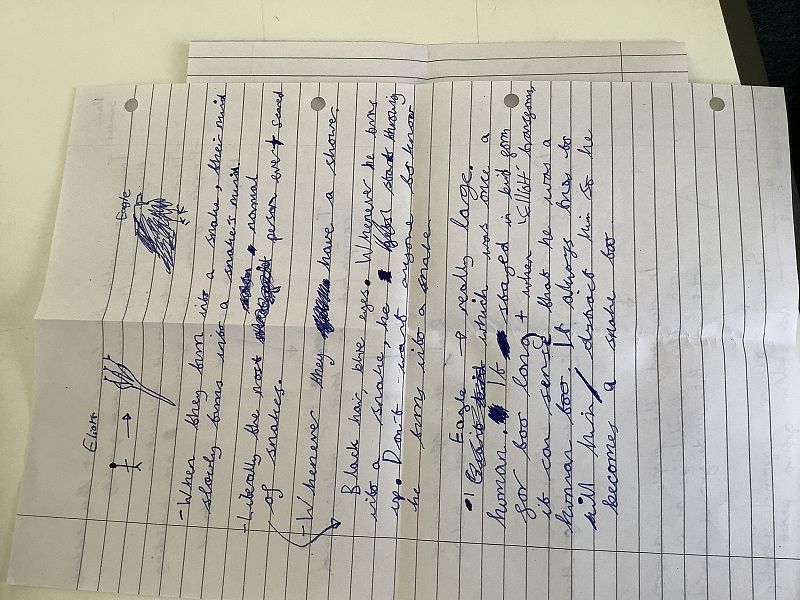 Eliott
Eagle
- When they turn into a snake, their mind
slowly turns into a snake's mind.
- Literally the most normal person ever + scared
of snakes.
- Whenever they have a shower.
Black hair, blue eyes. Whenever he turns
into a snake, he starts throwing
up. Don't want anyone to know
he turns into a snake.
•1 Eagle - really large.
which was once a
human. It stayed in bird form
for too long + when Elliott transforms,
it can sense that he was a
human too. It always tries to
kill him / distract him so he
becomes a snake too